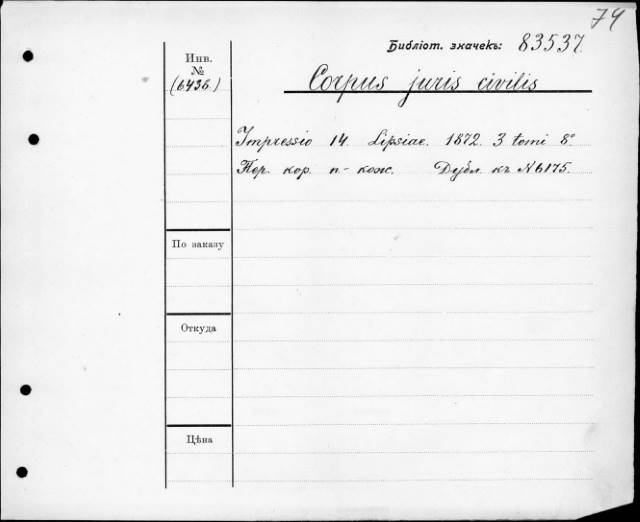 74
Библіот. значекъ: 83537.
Инв.
№
(6436.)
Corpus juris civilis
Impressio 14. Lipsiae. 1872. 3 tomi 8°
Пер. кор. п.-кож. Дубл. къ №6175.
По заказу
Откуда
Цѣна